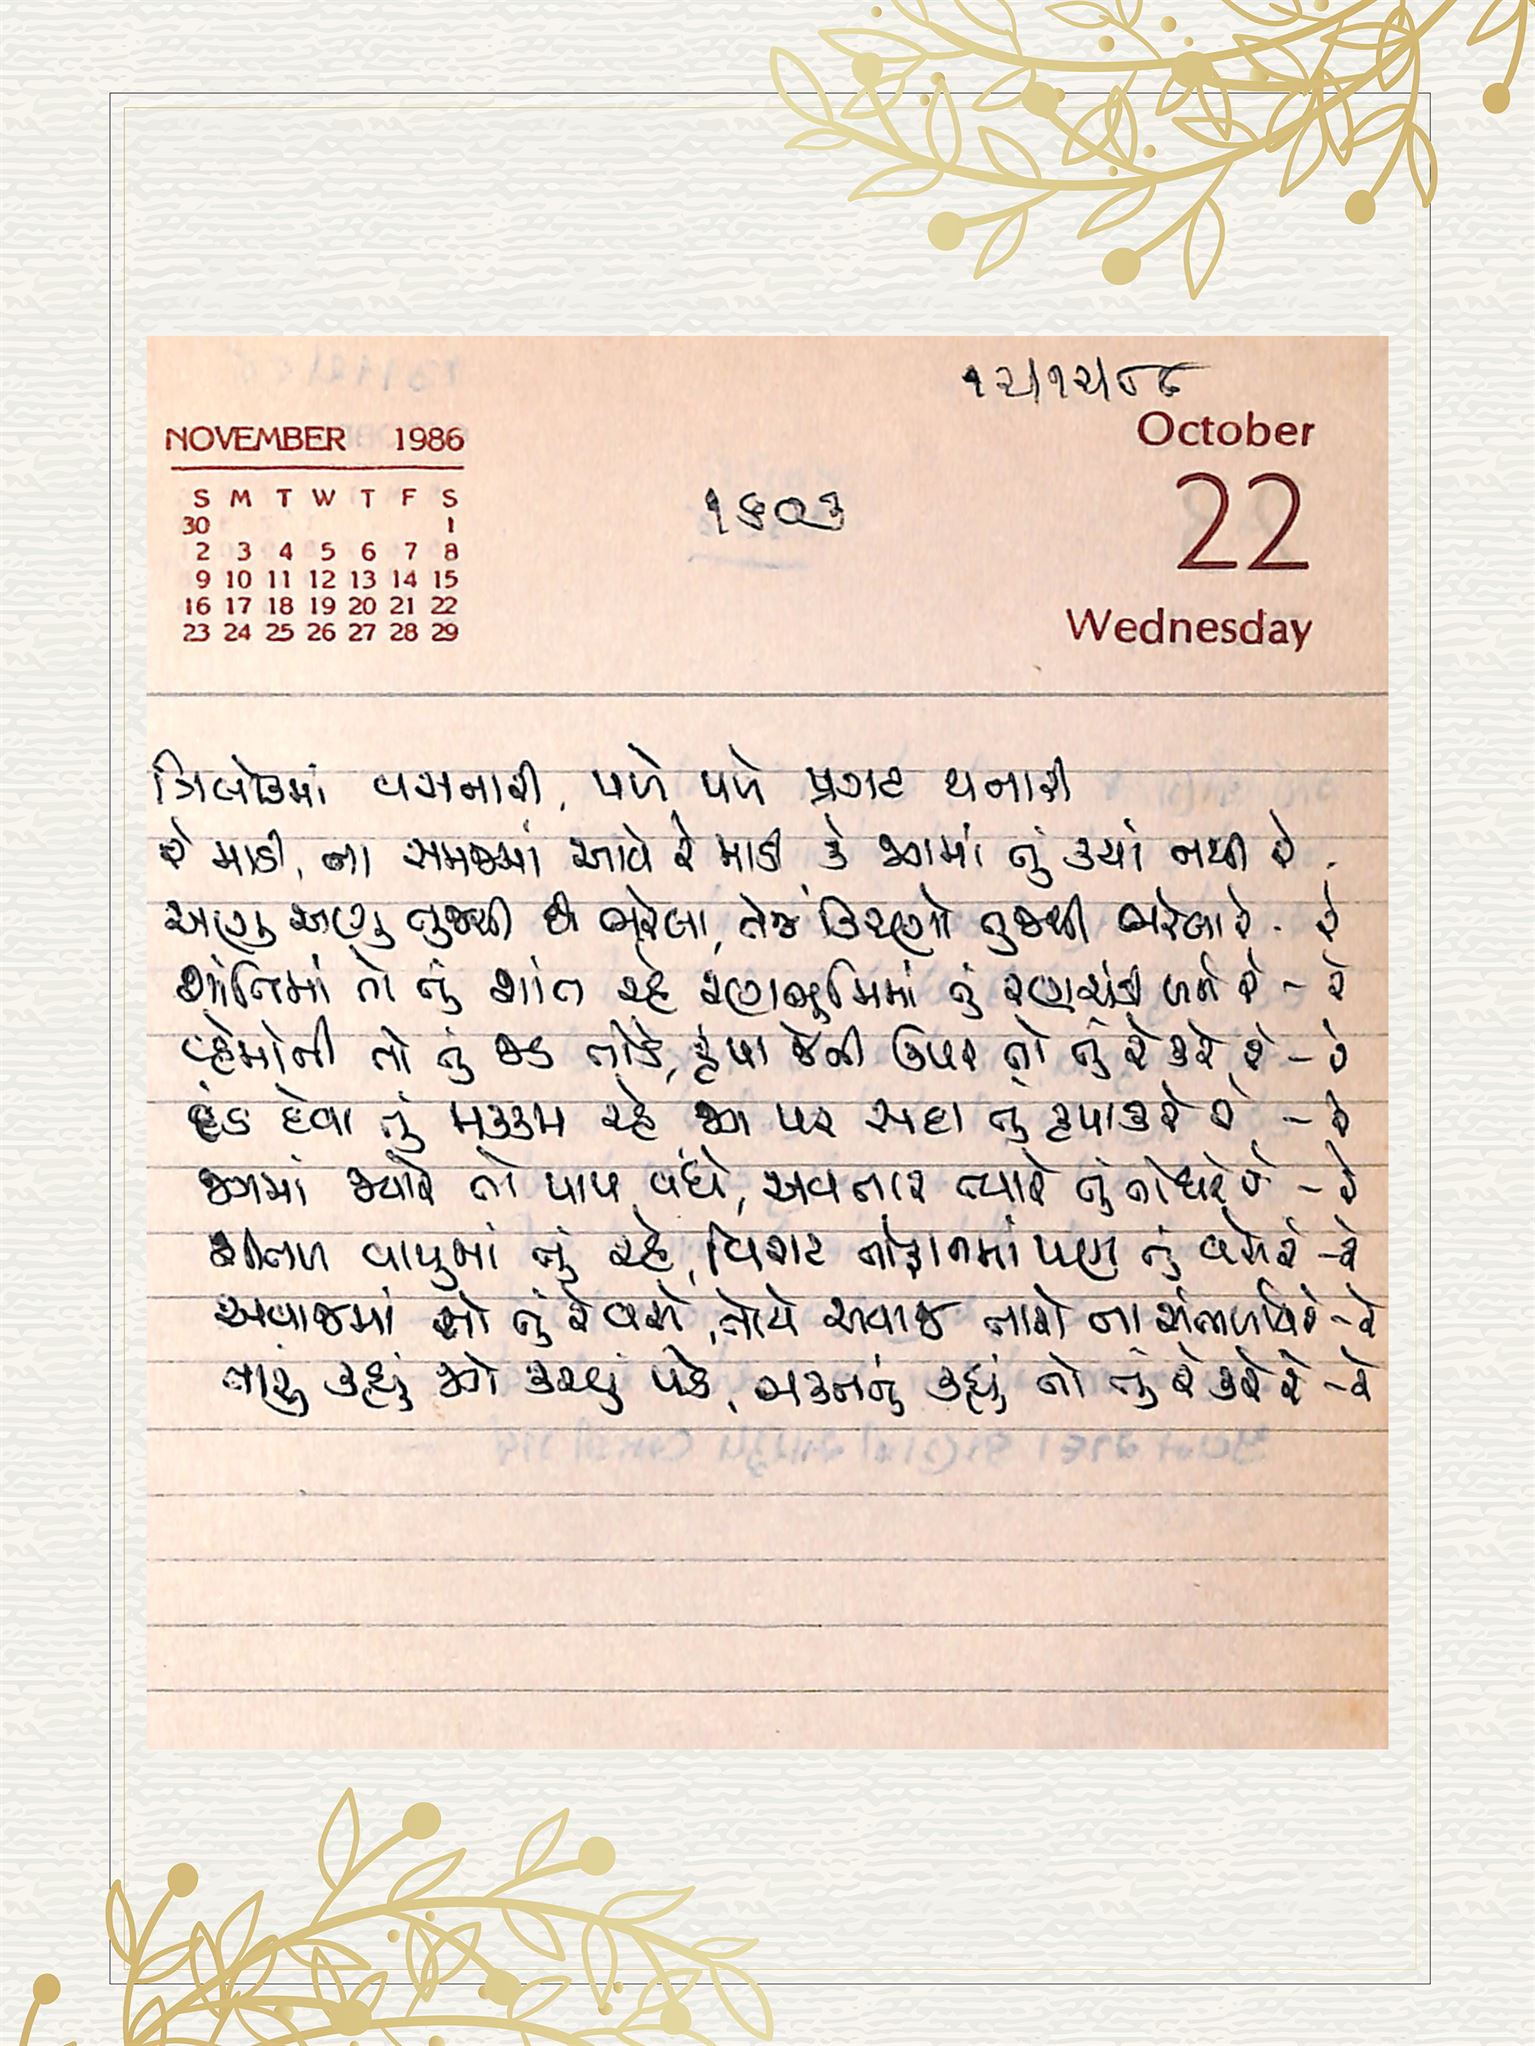 ૧૨/૧૨/૮૮
NOVEMBER 1986
October
S M T W T F S
30 1
2 3 4 5 6 7 8
9 10 11 12 13 14 15
16 17 18 19 20 21 22
23 24 25 26 27 28 29
22
Wednesday
ત્રિલોકમાં વસનારી, પળે પળે પ્રગટ થનારી
રે માડી, ના સમજમાં આવે રે માડી કે જગમાં તું ક્યાં નથી રે.
અણુ અણુ તુજથી છે ભરેલા, તેજ કિરણો તુજથી ભરેલા રે. રે
શાંતિમાં તો તું શાંત રહે રણભૂમિમાં તું રણચંડી બને રે - રે
વ્હેમોની તો તું જડ તોડે, કૃપા જેની ઉપર તો તું રે કરે રે - રે
દંડ દેવા તું મક્કમ રહે જગ પર સદા તું કૃપા કરે રે - રે
જગમાં જ્યારે તો પાપ વધે, અવતાર ત્યારે તું તો ધરે રે - રે
શીતળ વાયુમાં તું રહે, વિરાટ તોફાનમાં પણ તું વસે રે - રે
અવાજમાં તો તું રે વસે, તોયે અવાજ તારો ના સંભળાયે રે - રે
તારું કહ્યું જગે કરવું પડે, ભક્તનું કહ્યું તો તું રે કરે રે - રે